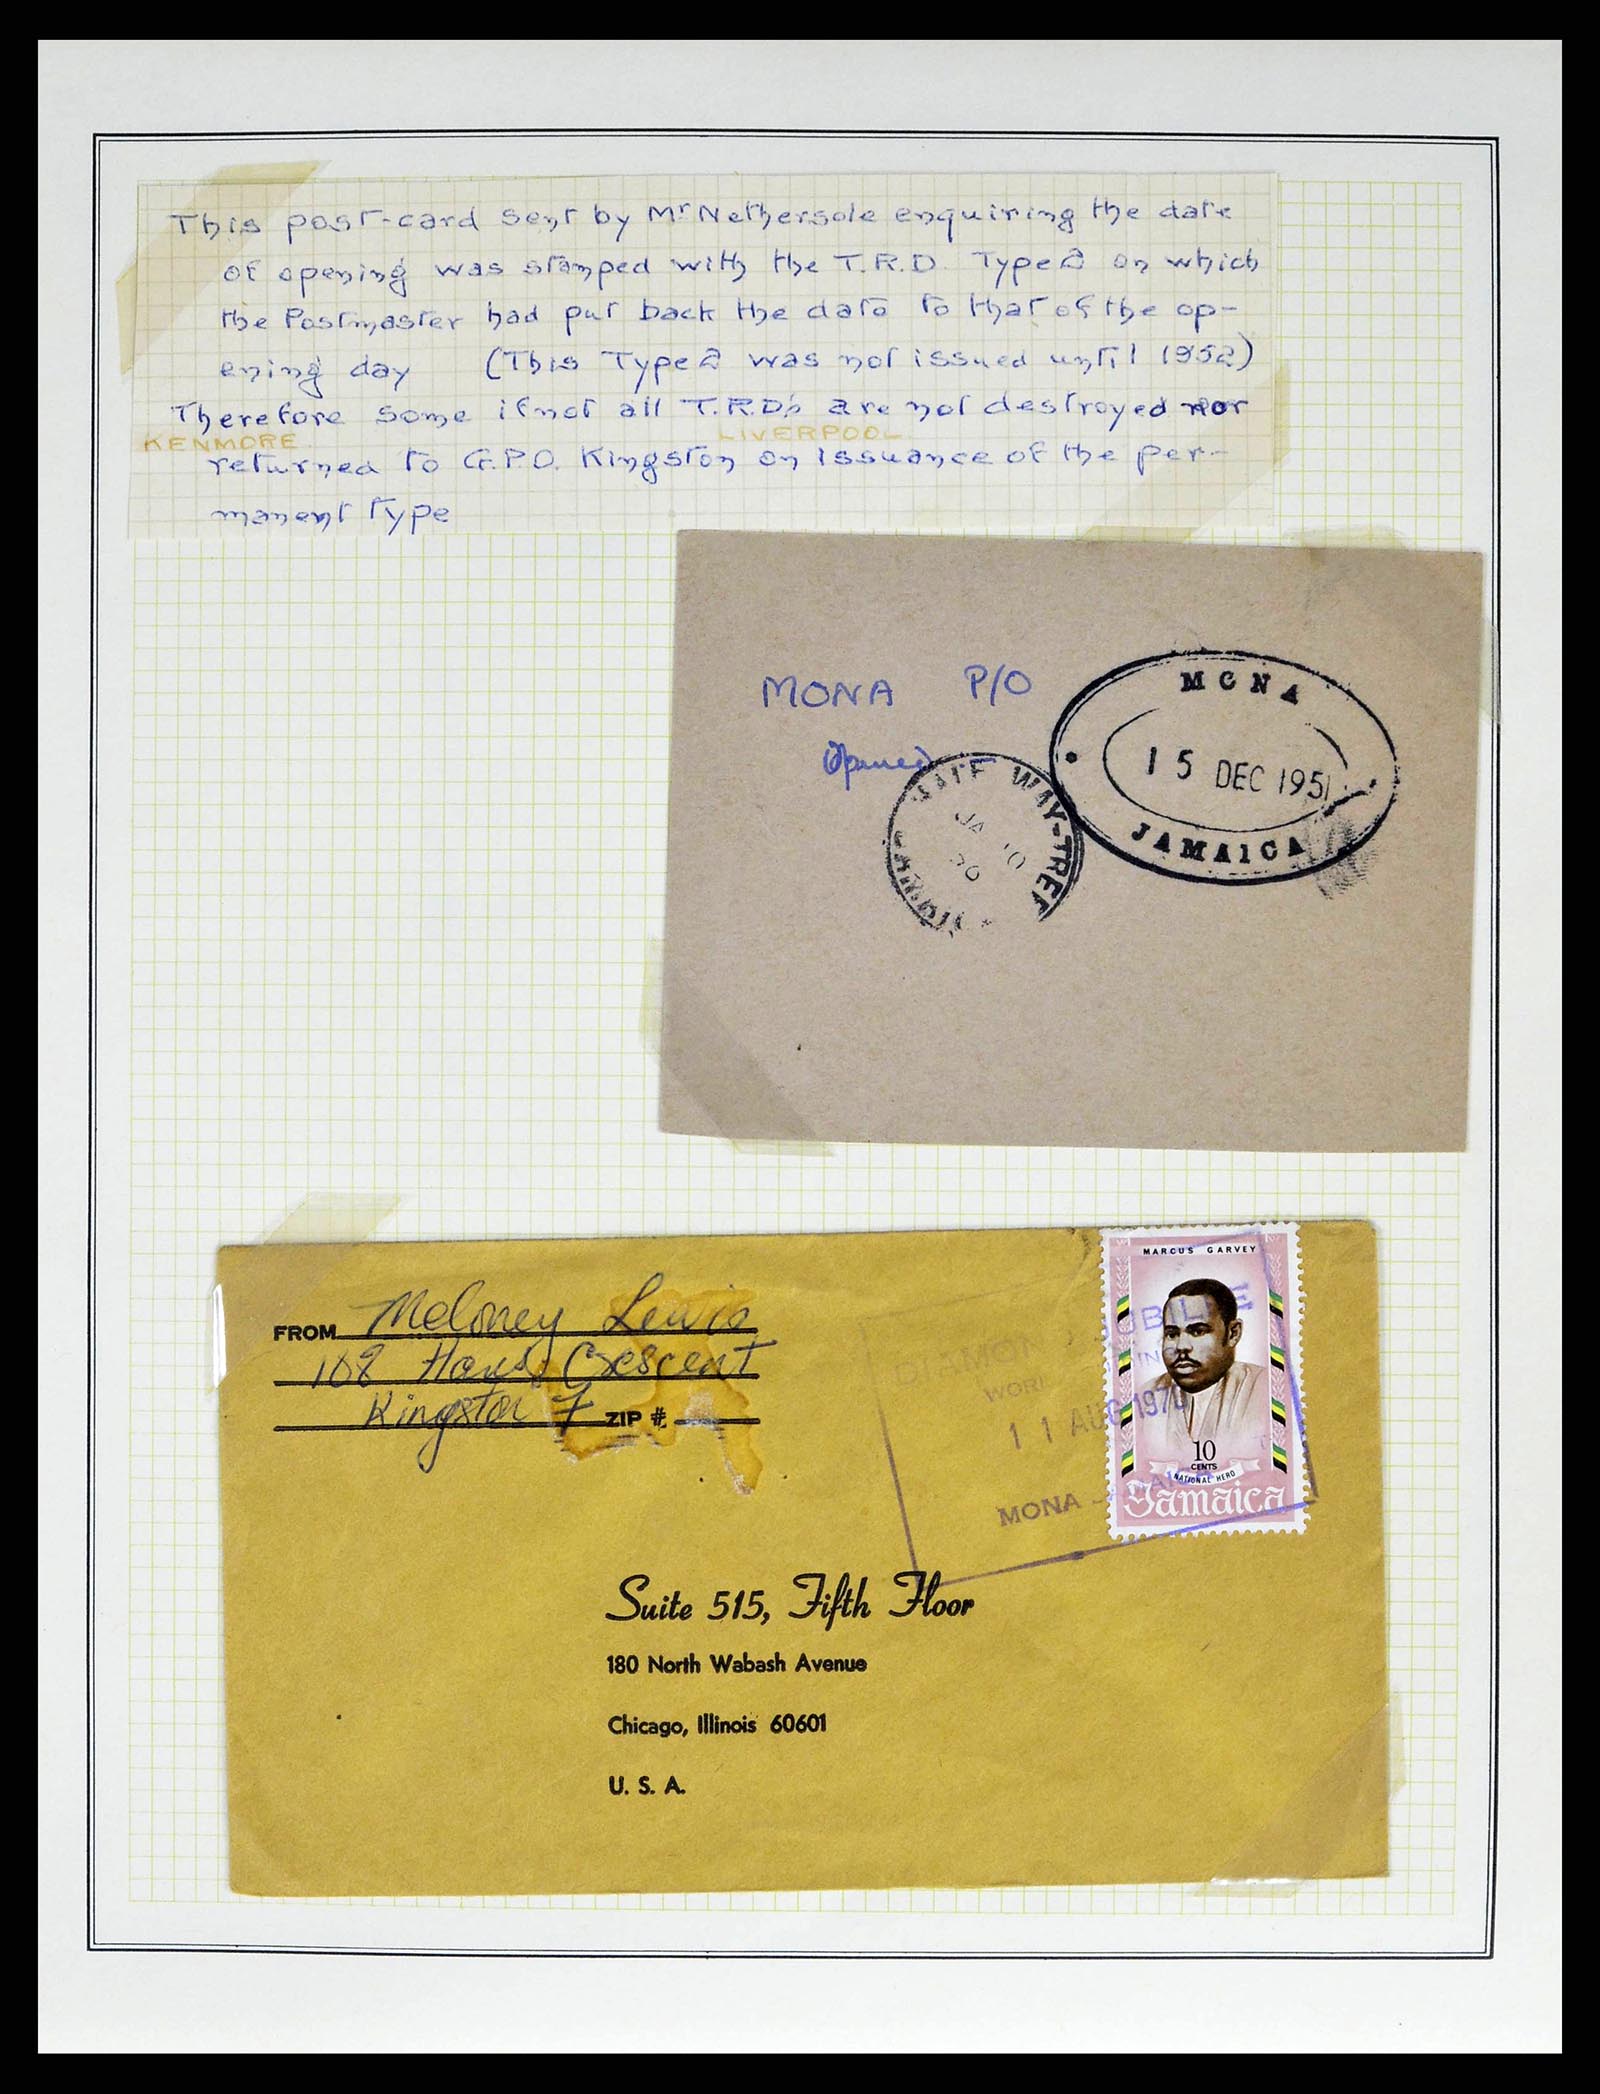 This post-card sent by Mr Nethersole enquiring the date
of opening was stamped with the T.R.D. Type 2 on which
the Postmaster had put back the date to that of the op-
ening day (This Type 2 was not issued until 1952)
Therefore some if not all T.R.D's are not destroyed nor
KENMORE LIVERPOOL
returned to G.P.O. Kingston on issuance of the per-
manent type
MONA P/O
Opened
MONA
15 DEC 1951
JAMAICA
WAY-TREE
JA 10
MARCUS GARVEY
JUBILEE
11 AUG 1970
MONA - JAMAICA
10
CENTS
NATIONAL HERO
Jamaica
FROM Meloney Lewis
108 Crescent
Kingston 7 ZIP #
Suite 515, Fifth Floor
180 North Wabash Avenue
Chicago, Illinois 60601
U. S. A.